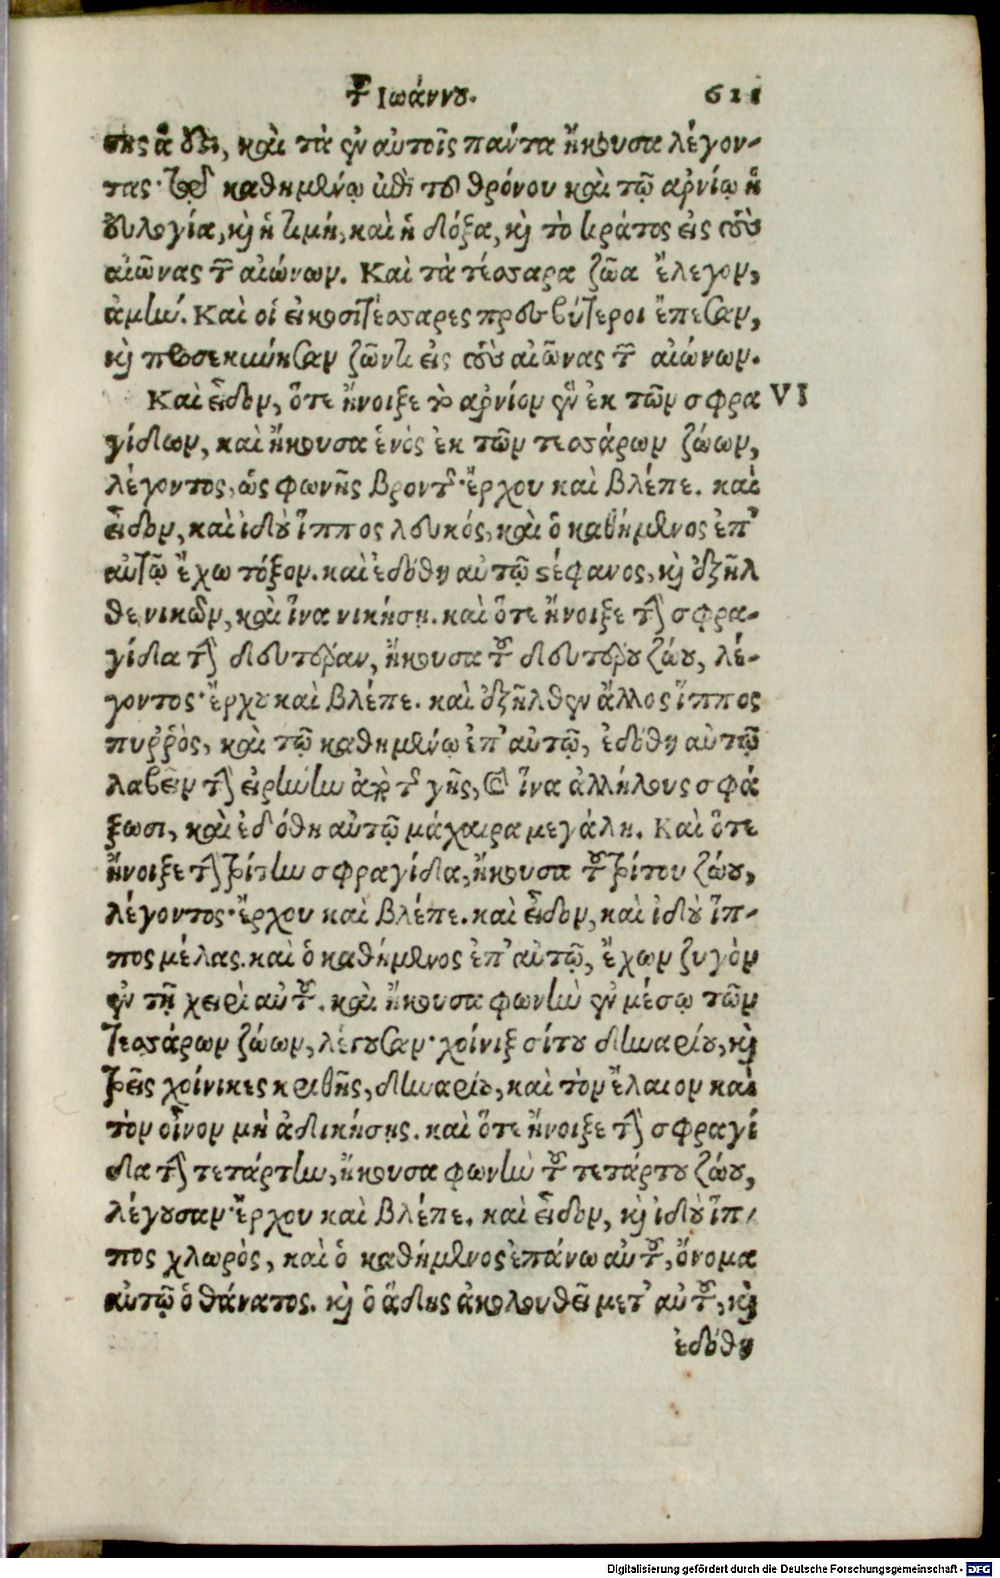 τοῦ Ἰωάννου. 611
σης ἅ ἐςι, καὶ τὰ ἐν αὐτοῖς πάντα ἤκουσα λέγον-
τας· τῷ καθημένῳ ἐπὶ τοῦ θρόνου καὶ τῷ ἀρνίῳ ἡ
εὐλογία, καὶ ἡ τιμή, καὶ ἡ δόξα, καὶ τὸ κράτος εἰς τοὺς
αἰῶνας τῶν αἰώνων. Καὶ τὰ τέσσαρα ζῶα ἔλεγον,
ἀμήν. Καὶ οἱ εἰκοσιτέσσαρες πρεσβύτεροι ἔπεσαν,
καὶ προσεκύνησαν ζῶντι εἰς τοὺς αἰῶνας τῶν αἰώνων.
Καὶ εἶδον, ὅτε ἤνοιξε τὸ ἀρνίον ἓν ἐκ τῶν σφρα VI
γίδων, καὶ ἤκουσα ἑνὸς ἐκ τῶν τεσσάρων ζώων,
λέγοντος, ὡς φωνῆς βροντῆς· ἔρχου καὶ βλέπε. καὶ
εἶδον, καὶ ἰδοὺ ἵππος λευκός, καὶ ὁ καθήμενος ἐπ'
αὐτῷ ἔχω τόξον. καὶ ἐδόθη αὐτῷ ςέφανος, καὶ ἐξῆλ
θε νικῶν, καὶ ἵνα νικήσῃ. καὶ ὅτε ἤνοιξε τὴν σφρα-
γίδα τὴν δευτέραν, ἤκουσα τοῦ δευτέρου ζώου, λέ-
γοντος· ἔρχου καὶ βλέπε. καὶ ἐξῆλθεν ἄλλος ἵππος
πυῤῥὸς, καὶ τῷ καθημένῳ ἐπ' αὐτῷ, ἐδόθη αὐτῷ
λαβεῖν τὴν εἰρήνην ἀπὸ τῆς γῆς, καὶ ἵνα ἀλλήλους σφά
ξωσι, καὶ ἐδόθη αὐτῷ μάχαιρα μεγάλη. Καὶ ὅτε
ἤνοιξε τὴν τρίτην σφραγίδα, ἤκουσα τοῦ τρίτου ζώου,
λέγοντος· ἔρχου καὶ βλέπε. καὶ εἶδον, καὶ ἰδοὺ ἵπ-
πος μέλας. καὶ ὁ καθήμενος ἐπ' αὐτῷ, ἔχων ζυγὸν
ἐν τῇ χειρὶ αὐτοῦ. καὶ ἤκουσα φωνὴν ἐν μέσῳ τῶν
τεσσάρων ζώων, λέγουσαν· χοίνιξ σίτου δηναρίου, καὶ
τρεῖς χοίνικες κριθῆς, δηναρίου, καὶ τὸν ἔλαιον καὶ
τὸν οἶνον μὴ ἀδικήσῃς. καὶ ὅτε ἤνοιξε τὴν σφραγί
δα τὴν τετάρτην, ἤκουσα φωνὴν τοῦ τετάρτου ζώου,
λέγουσαν· ἔρχου καὶ βλέπε. καὶ εἶδον, καὶ ἰδοὺ ἵπ-
πος χλωρὸς, καὶ ὁ καθήμενος ἐπάνω αὐτοῦ, ὄνομα
αὐτῷ ὁ θάνατος. καὶ ὁ ᾅδης ἀκολουθεῖ μετ' αὐτοῦ, καὶ
ἐδόθη
Digitalisierung gefördert durch die Deutsche Forschungsgemeinschaft - DFG